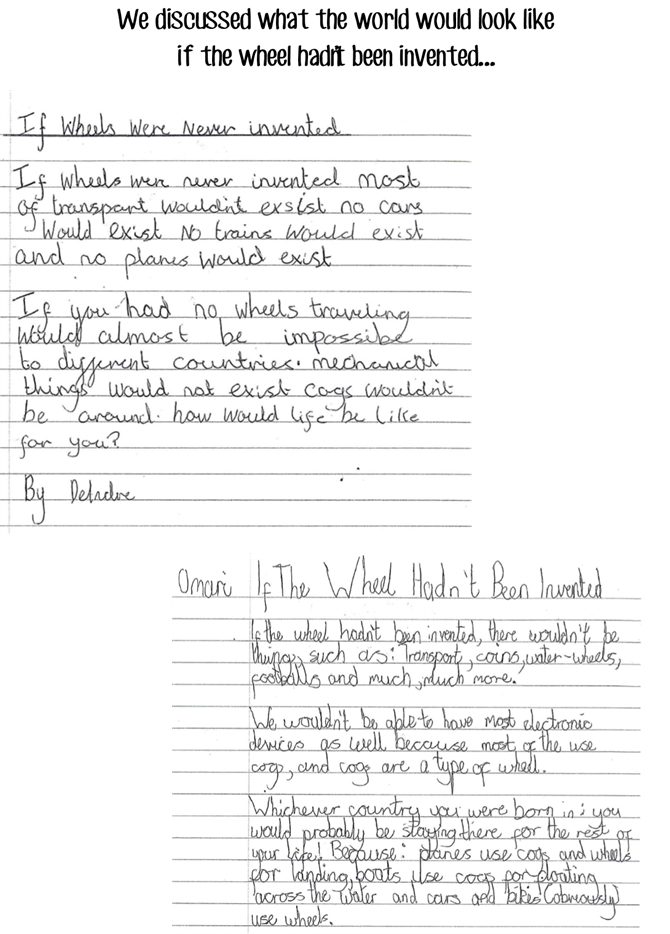 We discussed what the world would look like
if the wheel hadn't been invented...
If Wheels Were Never invented
If Wheels were never invented most
of transpart wouldn't exsist no cars
Would exist No trains Would exist
and no planes Would exist
If you had no wheels traveling
Would almost be impossibe
to different countries. mechanical
things would not exist cogs wouldn't
be around. how would life be like
for you?
By
Omari If The Wheel Hadn't Been Invented
If the wheel hadn't been invented, there wouldn't be
things, such as: Transport, coins, water-wheels,
footballs and much, much more.
We wouldn't be able to have most electronic
devices as well because most of the use
cogs, and cogs are a type of wheel.
Whichever country you were born in; you
would probably be staying there for the rest of
your life! Because: planes use cogs and wheels
for landing, boats use cogs for floating
across the water and cars and bikes (obviously)
use wheels.